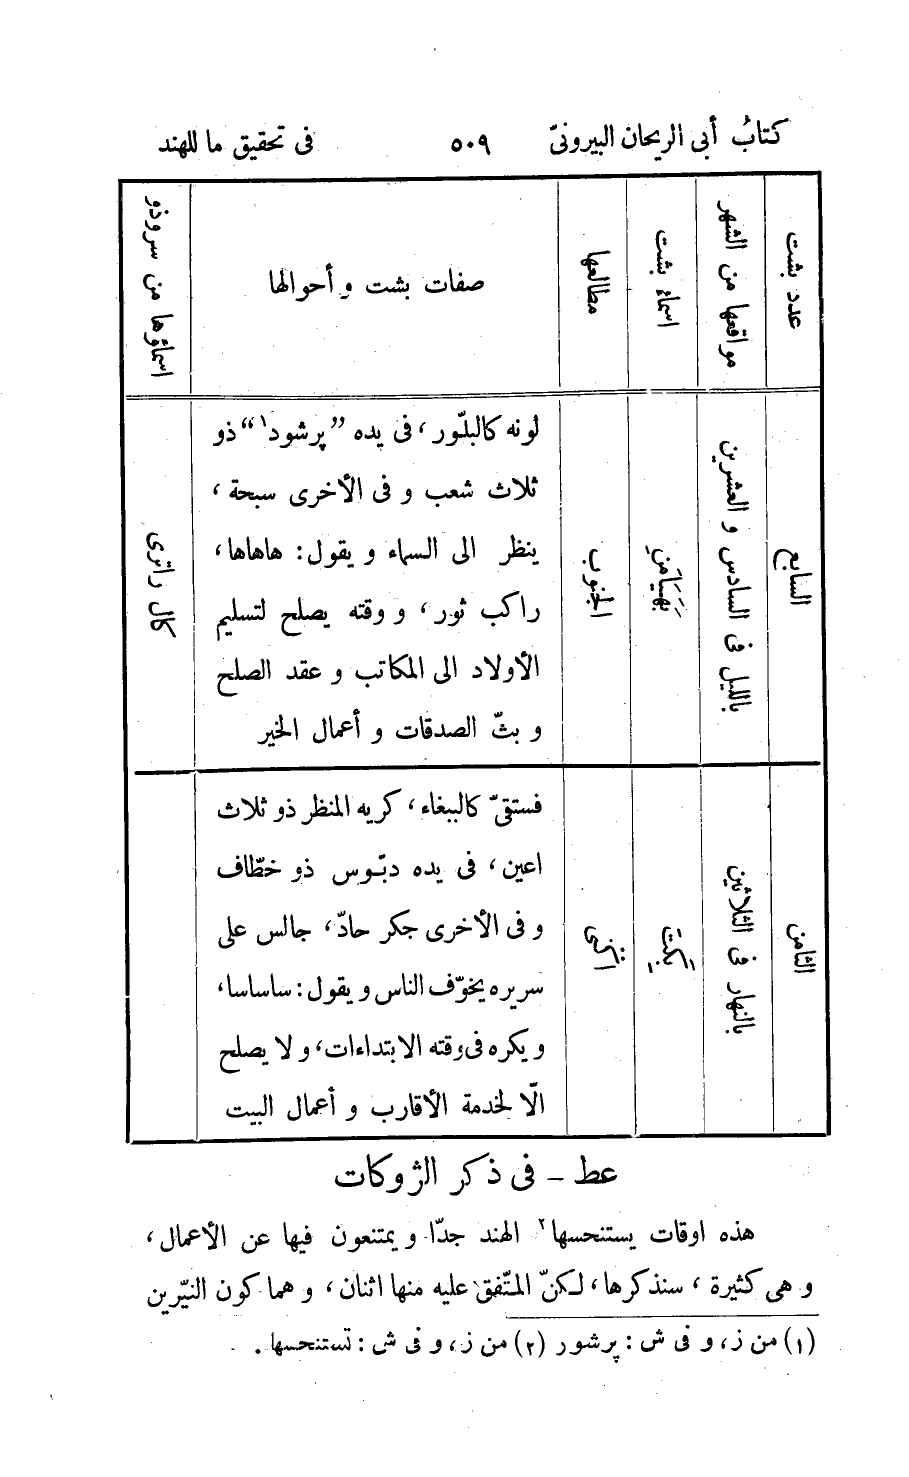 كتابُ أبى الريحان البيرونىّ ٥٠٩ فى تحقيق ما للهند
عدد بشت
مواقعها من الشهر
اسماء بشت
مطالعها
صفات بشت و أحوالها
اسماؤها من سروذو
السابع
بالليل فى السادس و العشرين
الجنوب
لونه كالبلّور، فى يده ”پرشود١“ ذو
ثلاث شعب و فى الأخرى سبحة،
ينظر الى السماء و يقول: هاهاها،
راكب ثور، و وقته يصلح لتسليم
الأولاد الى المكاتب و عقد الصلح
و بثّ الصدقات و أعمال الخير
كال راترى
الثامن
بالنهار فى الثلاثين
بِكَتَ
اگنى
فستقىّ كالببغاء، كريه المنظر ذو ثلاث
اعين، فى يده دبّوس ذو خطّاف
و فى الأخرى جكر حادّ، جالس على
سريره يخوّف الناس و يقول: ساساسا،
و يكره فى وقته الابتداءات، و لا يصلح
الّا لخدمة الأقارب و أعمال البيت
عط – فى ذكر الژوكات
هذه اوقات يستنحسها٢ الهند جدّا و يمتنعون فيها عن الأعمال،
و هى كثيرة، سنذكرها، لكنّ المتّفق عليه منها اثنان، و هما كون النيّرين
(١) من ز، و فى ش: پرشور (٢) من ز، و فى ش: تستنحسها.